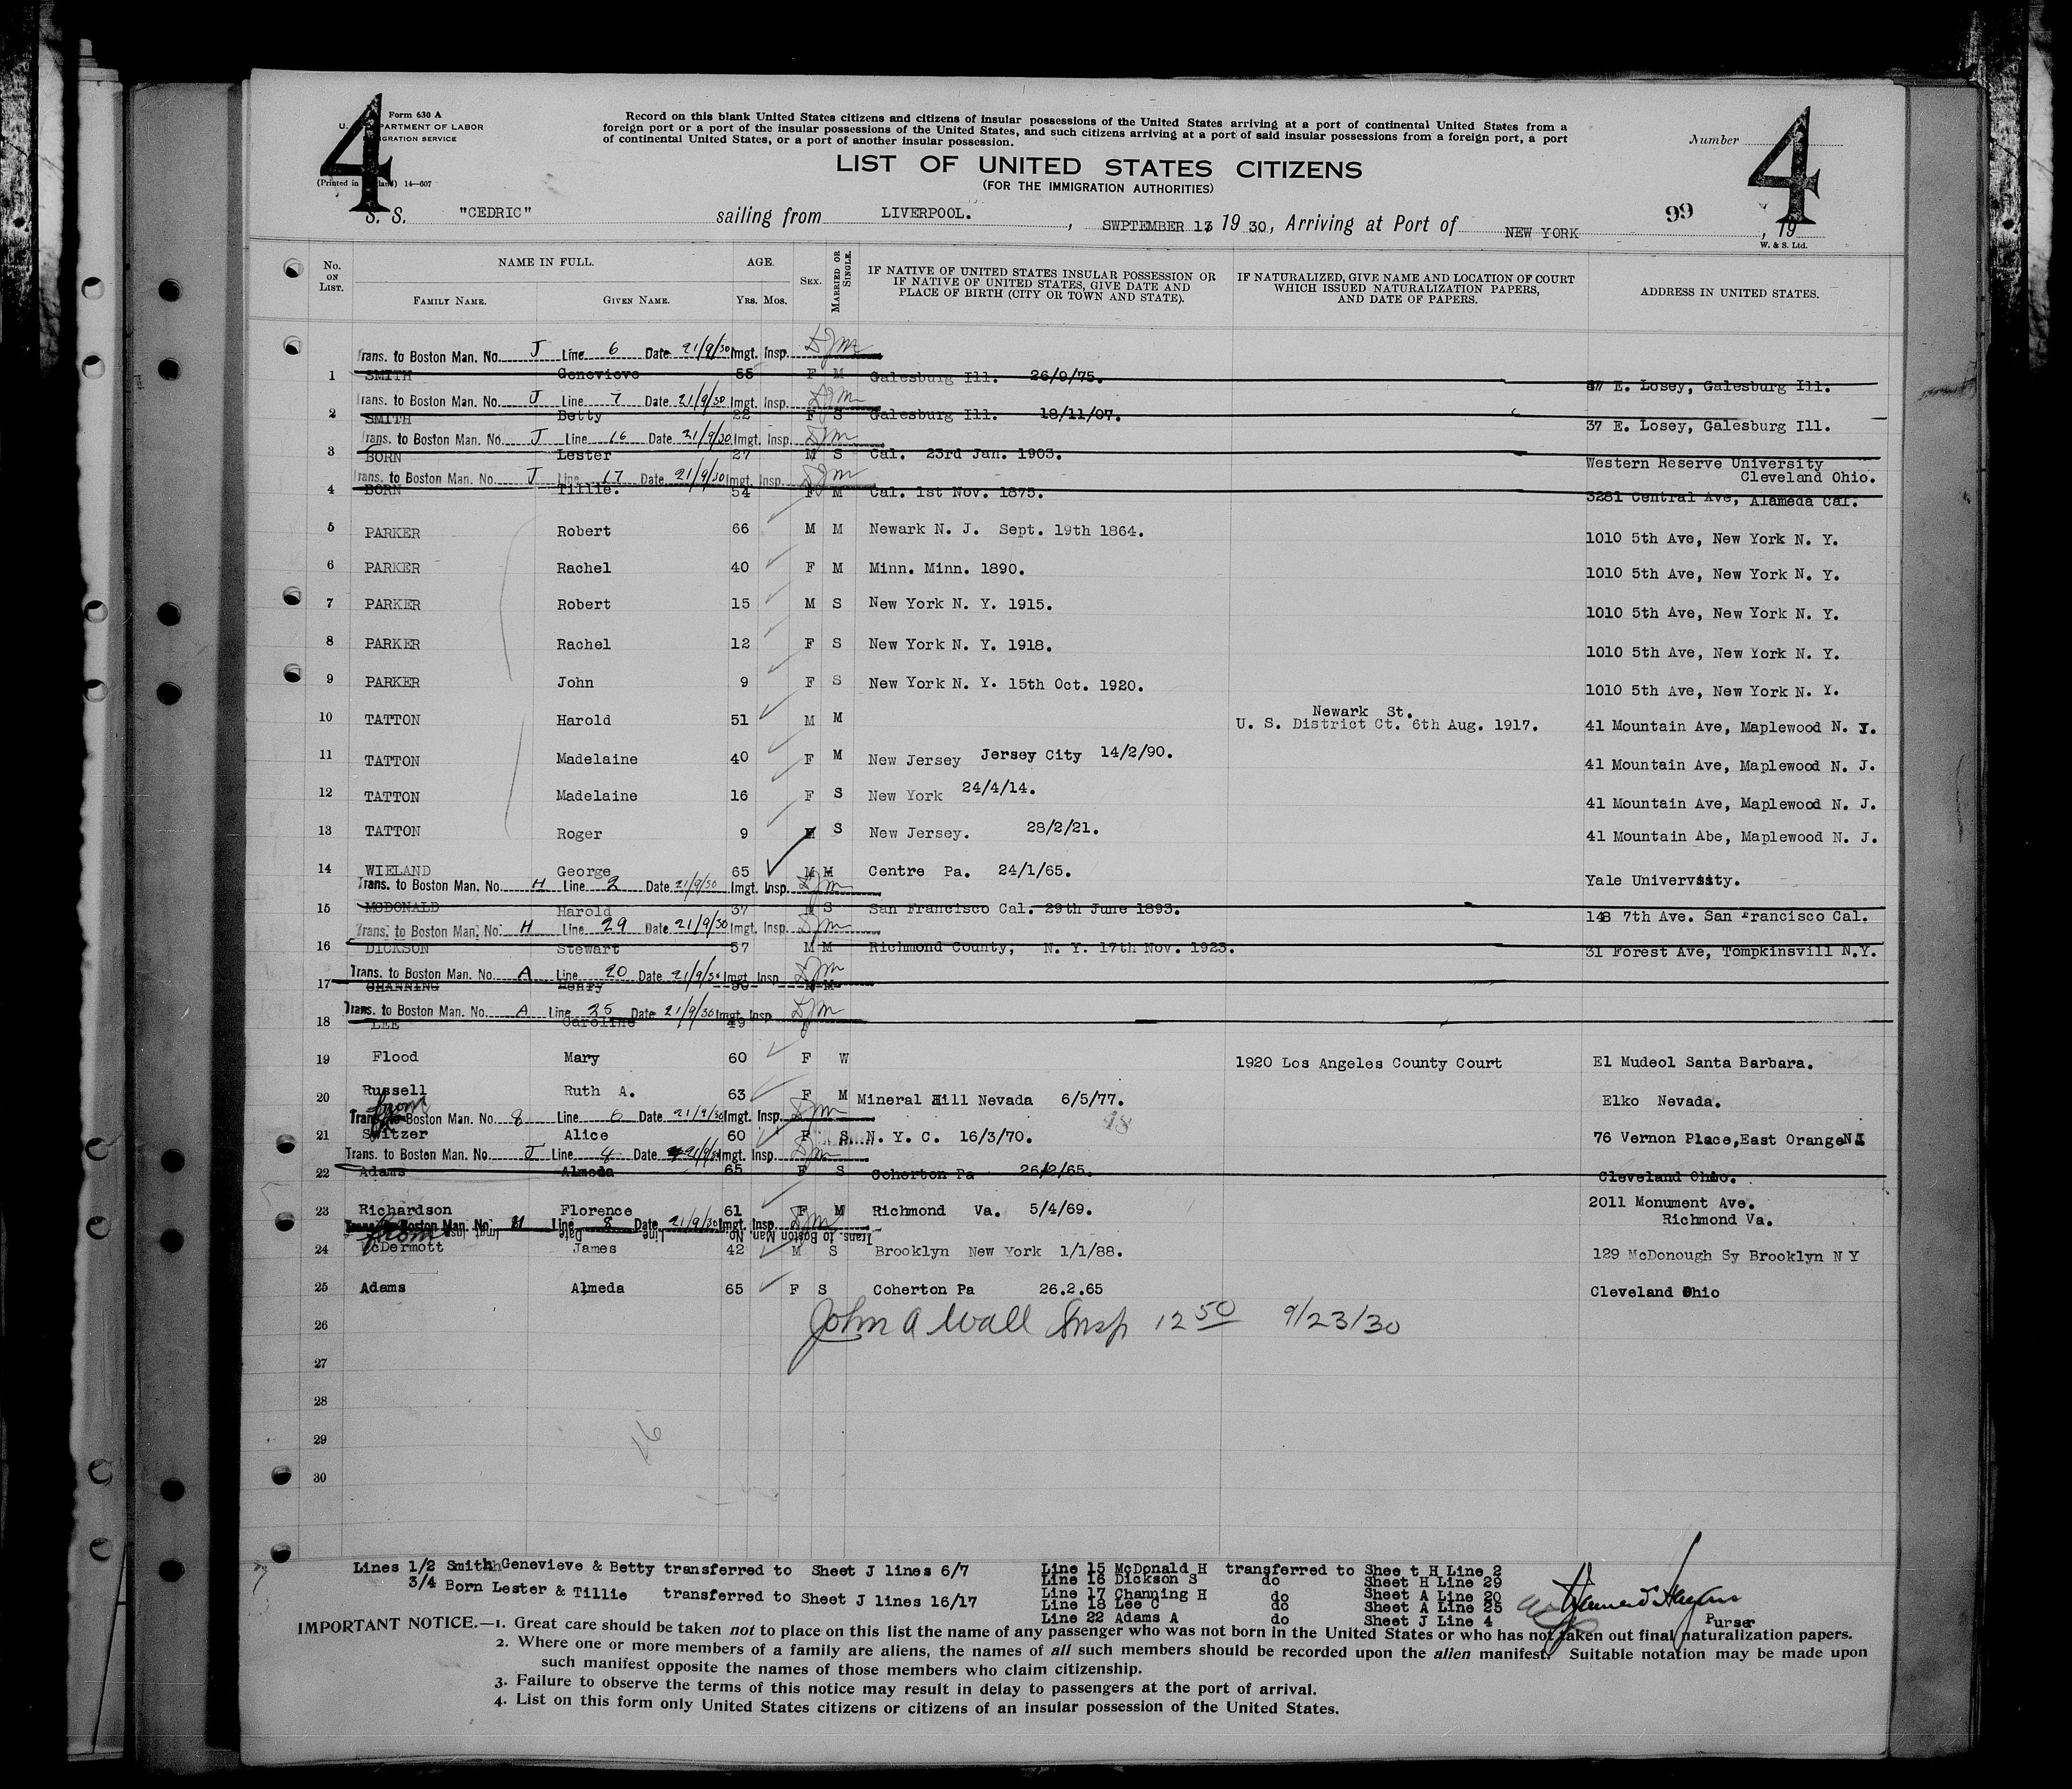 4
Form 630 A
U. S. DEPARTMENT OF LABOR
IMMIGRATION SERVICE
(Printed in England) 14—607
Record on this blank United States citizens and citizens of insular possessions of the United States arriving at a port of continental United States from a
foreign port or a port of the insular possessions of the United States, and such citizens arriving at a port of said insular possessions from a foreign port, a port
of continental United States, or a port of another insular possession.
Number
4
LIST OF UNITED STATES CITIZENS
(FOR THE IMMIGRATION AUTHORITIES)
S. S. "CEDRIC" sailing from LIVERPOOL. , SWPTEMBER 13 19 30, Arriving at Port of NEW YORK 99 , 19
W. & S. Ltd.
No. ON LIST. NAME IN FULL. FAMILY NAME. GIVEN NAME. AGE. YRS. MOS. SEX. MARRIED OR SINGLE. IF NATIVE OF UNITED STATES INSULAR POSSESSION OR IF NATIVE OF UNITED STATES, GIVE DATE AND PLACE OF BIRTH (CITY OR TOWN AND STATE). IF NATURALIZED, GIVE NAME AND LOCATION OF COURT WHICH ISSUED NATURALIZATION PAPERS, AND DATE OF PAPERS. ADDRESS IN UNITED STATES.
Trans. to Boston Man. No. J Line 6 Date 21/9/30 Imgt. Insp.
1 SMITH Genevieve 55 F M Galesburg Ill. 26/9/75. 37 E. Losey, Galesburg Ill.
Trans. to Boston Man. No. J Line 7 Date 21/9/30 Imgt. Insp.
2 SMITH Betty 22 F S Galesburg Ill. 18/11/07. 37 E. Losey, Galesburg Ill.
Trans. to Boston Man. No. J Line 16 Date 21/9/30 Imgt. Insp.
3 BORN Lester 27 M S Cal. 23rd Jan. 1903. Western Reserve University
Cleveland Ohio.
Trans. to Boston Man. No. J Line 17 Date 21/9/30 Imgt. Insp.
4 BORN Tillie. 54 F M Cal. 1st Nov. 1875. 3281 Central Ave, Alameda Cal.
5 PARKER Robert 66 M M Newark N. J. Sept. 19th 1864. 1010 5th Ave, New York N. Y.
6 PARKER Rachel 40 F M Minn. Minn. 1890. 1010 5th Ave, New York N. Y.
7 PARKER Robert 15 M S New York N. Y. 1915. 1010 5th Ave, New York N. Y.
8 PARKER Rachel 12 F S New York N. Y. 1918. 1010 5th Ave, New York N. Y.
9 PARKER John 9 F S New York N. Y. 15th Oct. 1920. 1010 5th Ave, New York N. Y.
Newark St.
10 TATTON Harold 51 M M U. S. District Ct. 6th Aug. 1917. 41 Mountain Ave, Maplewood N. J.
11 TATTON Madelaine 40 F M New Jersey Jersey City 14/2/90. 41 Mountain Ave, Maplewood N. J.
12 TATTON Madelaine 16 F S New York 24/4/14. 41 Mountain Ave, Maplewood N. J.
13 TATTON Roger 9 M S New Jersey. 28/2/21. 41 Mountain Abe, Maplewood N. J.
14 WIELAND George 65 M M Centre Pa. 24/1/65. Yale University.
Trans. to Boston Man. No. H Line 2 Date 21/9/30 Imgt. Insp.
15 MCDONALD Harold 37 M S San Francisco Cal. 29th June 1893. 148 7th Ave. San Francisco Cal.
Trans. to Boston Man. No. H Line 29 Date 21/9/30 Imgt. Insp.
16 DICKSON Stewart 57 M M Richmond County, N. Y. 17th Nov. 1923. 31 Forest Ave, Tompkinsvill N.Y.
Trans. to Boston Man. No. A Line 20 Date 21/9/30 Imgt. Insp
17 CHANNING Henry 50 M M
Trans. to Boston Man. No. A Line 25 Date 21/9/30 Imgt. Insp
18 LEE Caroline 49
19 Flood Mary 60 F W 1920 Los Angeles County Court El Mudeol Santa Barbara.
20 Russell Ruth A. 63 F M Mineral Hill Nevada 6/5/77. Elko Nevada.
from
Trans. to Boston Man. No. 8 Line 6 Date 21/9/30 Imgt. Insp. 98
21 Switzer Alice 60 F S N. Y. C. 16/3/70. 76 Vernon Place,East Orange N J
Trans. to Boston Man. No. J Line 4 Date 21/9/30 Imgt. Insp.
22 Adams Almeda 65 F S Coherton Pa 26/2/65. Cleveland Ohio.
23 Richardson Florence 61 F M Richmond Va. 5/4/69. 2011 Monument Ave.
Richmond Va.
Trans. to Boston Man. No. H Line 8 Date 21/9/30 Imgt. Insp.
from
Trans. to Boston Man. No. Line Date Imgt. Insp.
24 McDermott James 42 M S Brooklyn New York 1/1/88. 129 McDonough Sy Brooklyn N Y
25 Adams Almeda 65 F S Coherton Pa 26.2.65 Cleveland Ohio
26 John A Wall Insp 12 50 9/23/30
27
28
29
16
30
Lines 1/2 Smith Genevieve & Betty transferred to Sheet J lines 6/7
3/4 Born Lester & Tillie transferred to Sheet J lines 16/17
Line 15 McDonald H transferred to Shee t H Line 2
Line 16 Dickson S do Sheet H Line 29
Line 17 Channing H do Sheet A Line 20
Line 18 Lee C do Sheet A Line 25
Line 22 Adams A do Sheet J Line 4
Purser
IMPORTANT NOTICE.—1. Great care should be taken not to place on this list the name of any passenger who was not born in the United States or who has not taken out final naturalization papers.
2. Where one or more members of a family are aliens, the names of all such members should be recorded upon the alien manifest. Suitable notation may be made upon
such manifest opposite the names of those members who claim citizenship.
3. Failure to observe the terms of this notice may result in delay to passengers at the port of arrival.
4. List on this form only United States citizens or citizens of an insular possession of the United States.